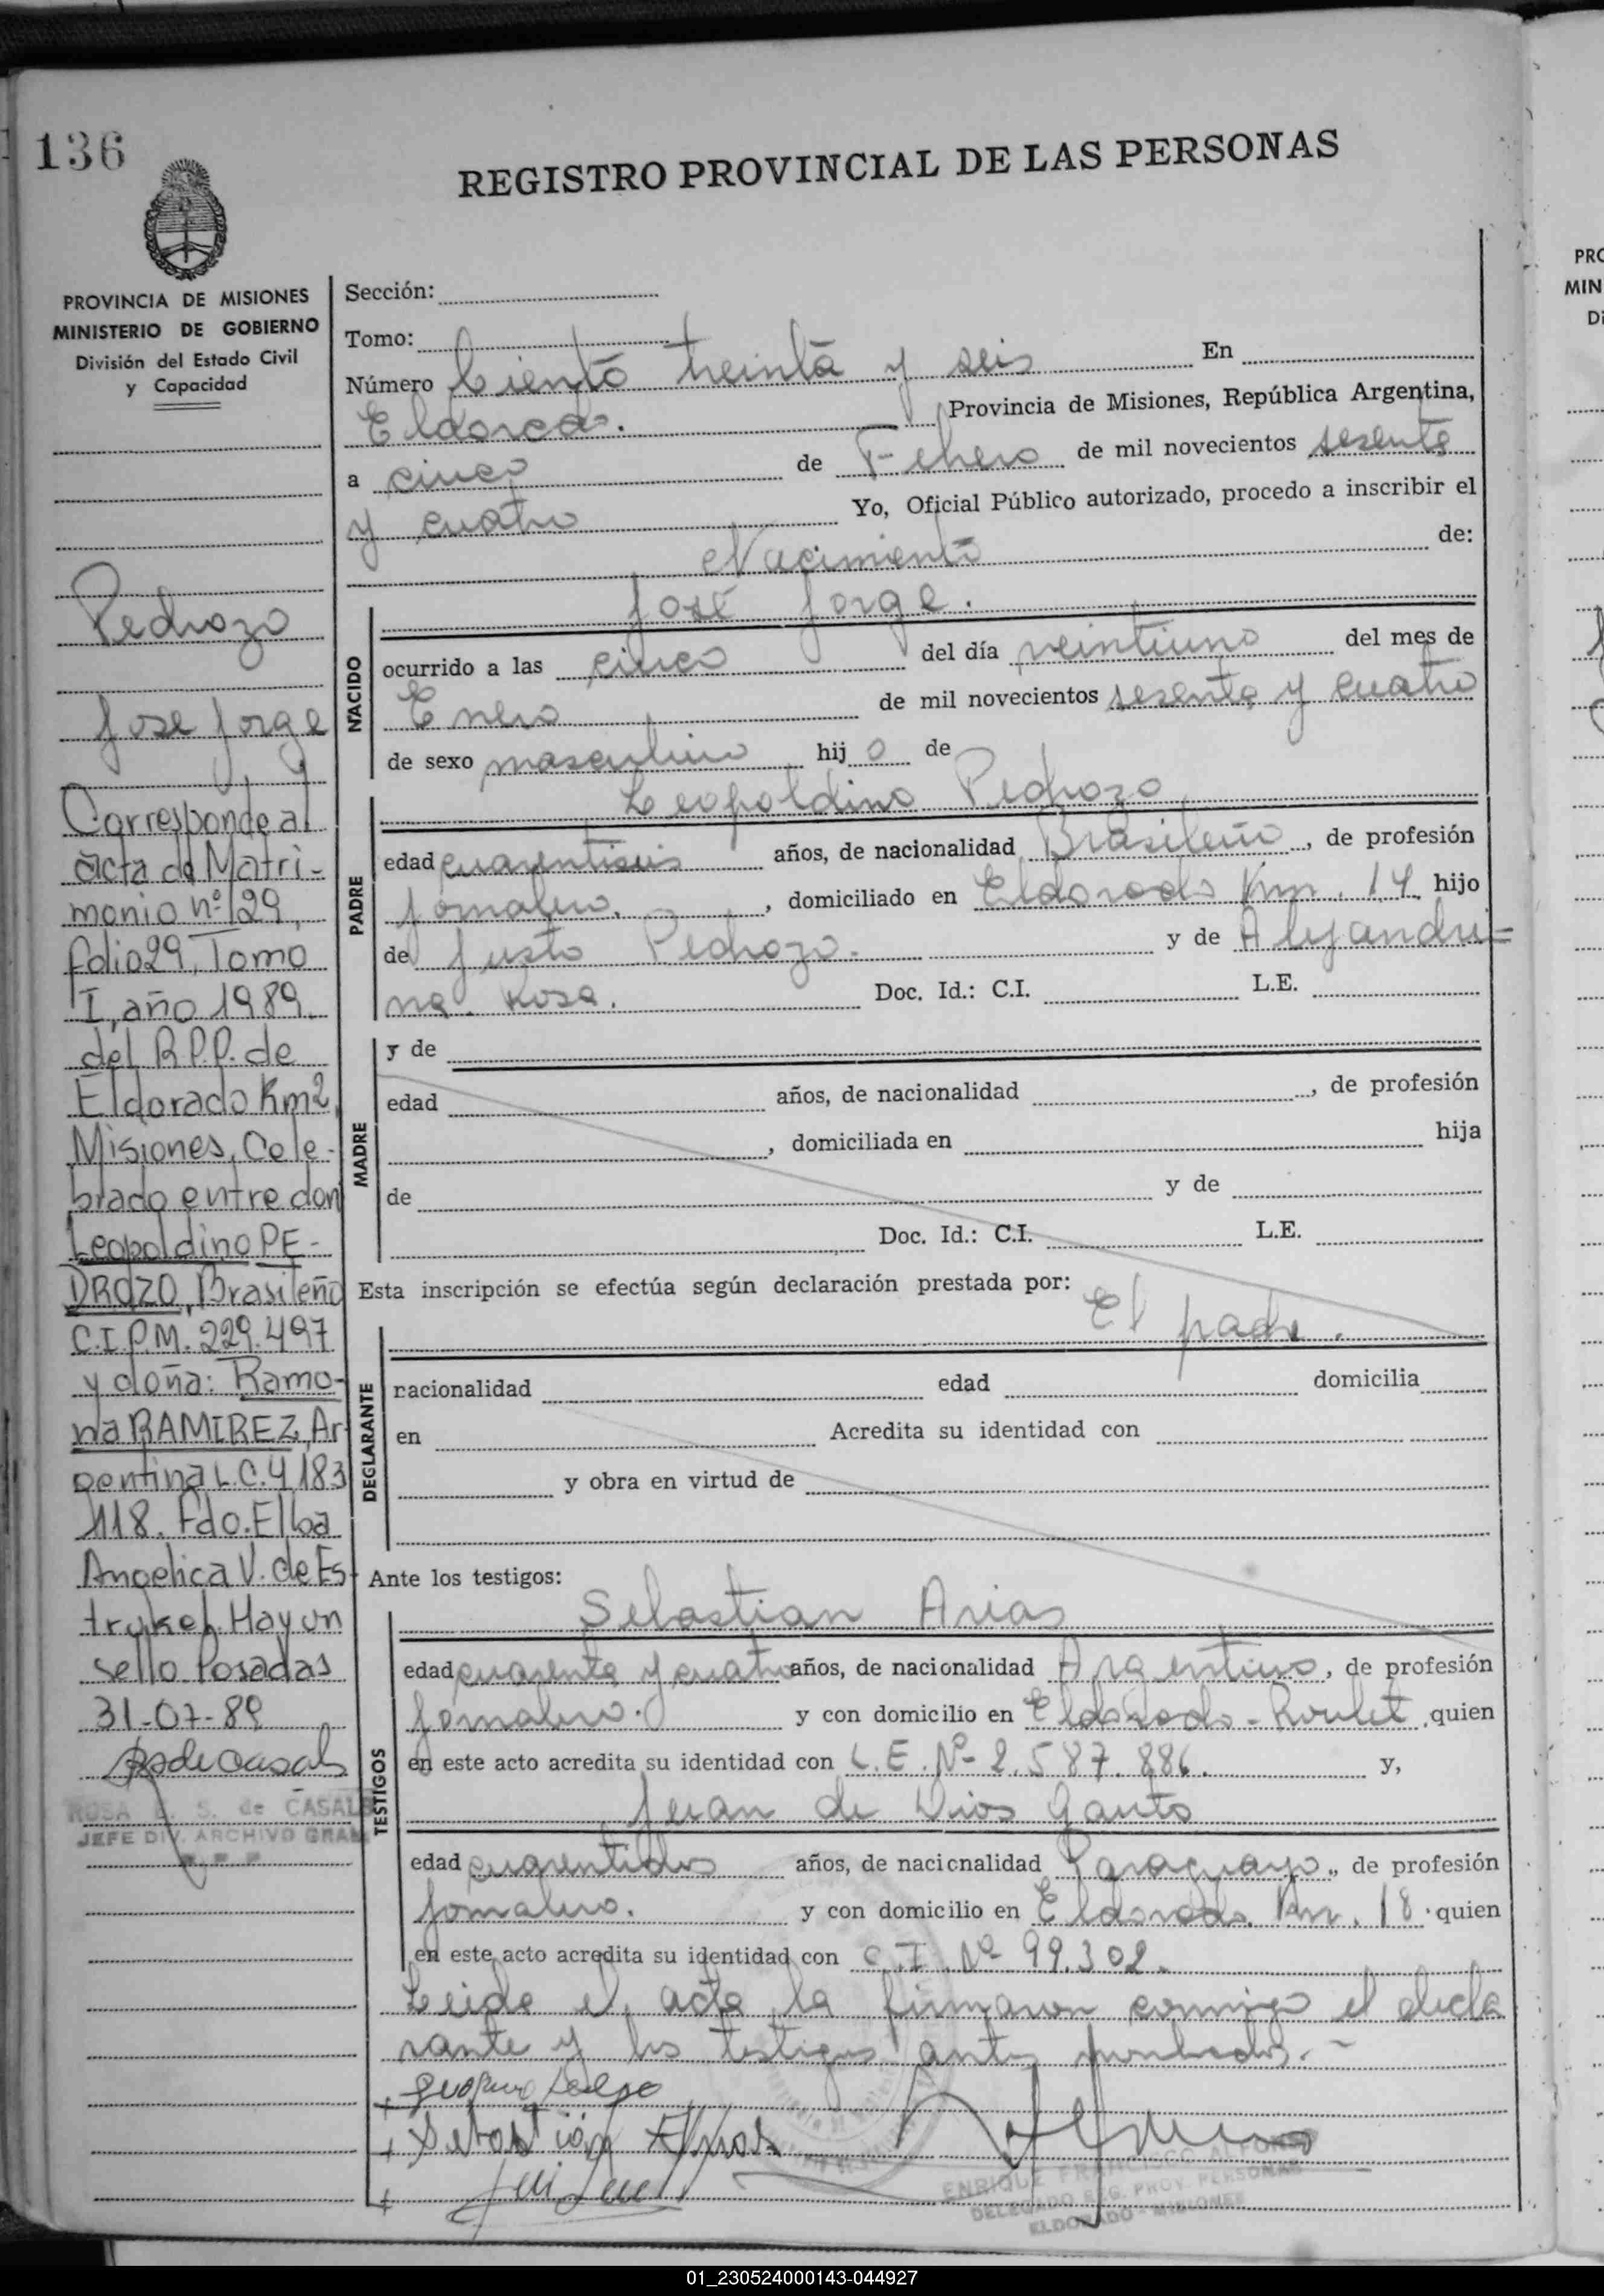 136
REGISTRO PROVINCIAL DE LAS PERSONAS
PROVINCIA DE MISIONES
MINISTERIO DE GOBIERNO
División del Estado Civil
y Capacidad
Pedrozo
Jose Jorge
Corresponde al
acta de Matri-
monio nº 29,
folio 29, Tomo
I, año 1989.
del R.P.P. de
Eldorado Km2,
Misiones, Cele-
brado entre don
Leopoldino PE-
DROZO, Brasileño
C.I.P.M. 229.497
y doña: Ramo-
na RAMIREZ, Ar-
gentina L.C. 4.183
118. Fdo. Elba
Angelica V. de Es-
Hay un
sello Posadas
31-07-89
ROSA E. S. de CASALS
JEFE DIV. ARCHIVO GRAL
Sección:
Tomo:
Número Ciento treinta y seis En
Eldorado. Provincia de Misiones, República Argentina,
a cinco de Febrero de mil novecientos sesenta
y cuatro Yo, Oficial Público autorizado, procedo a inscribir el
Nacimiento de:
José Jorge.
NACIDO
ocurrido a las cinco del día veintiuno del mes de
Enero de mil novecientos sesenta y cuatro
de sexo masculino hijo de
Leopoldino Pedrozo
PADRE
edad cuarentiseis años, de nacionalidad Brasileño, de profesión
Jornalero, domiciliado en Eldorado Km. 14 hijo
de Justo Pedrozo. y de Alejandri=
na Rosa. Doc. Id.: C.I. L.E.
MADRE
y de
edad años, de nacionalidad , de profesión
, domiciliada en hija
de y de
Doc. Id.: C.I. L.E.
Esta inscripción se efectúa según declaración prestada por:
El padre.
DECLARANTE
nacionalidad edad domicilia
en Acredita su identidad con
y obra en virtud de
Ante los testigos:
Sebastian Arias
TESTIGOS
edad cuarenta y cuatro años, de nacionalidad Argentino, de profesión
Jornalero. y con domicilio en Eldorado - Roulet, quien
en este acto acredita su identidad con L.E. Nº 2.587.886. y,
Juan de Dios Gauto
edad cuarentidos años, de nacionalidad Paraguayo, de profesión
Jornalero. y con domicilio en Eldorado Km. 18 quien
en este acto acredita su identidad con C.I. Nº 99.302.
Leida el acta la firmaron conmigo el decla
rante y los testigos antes nombrados.-
ENRIQUE FRANCISCO ALFONSO
DELEGADO REG. PROV. PERSONAS
ELDORADO - MISIONES
PRO
MIN
Di
01_230524000143-044927